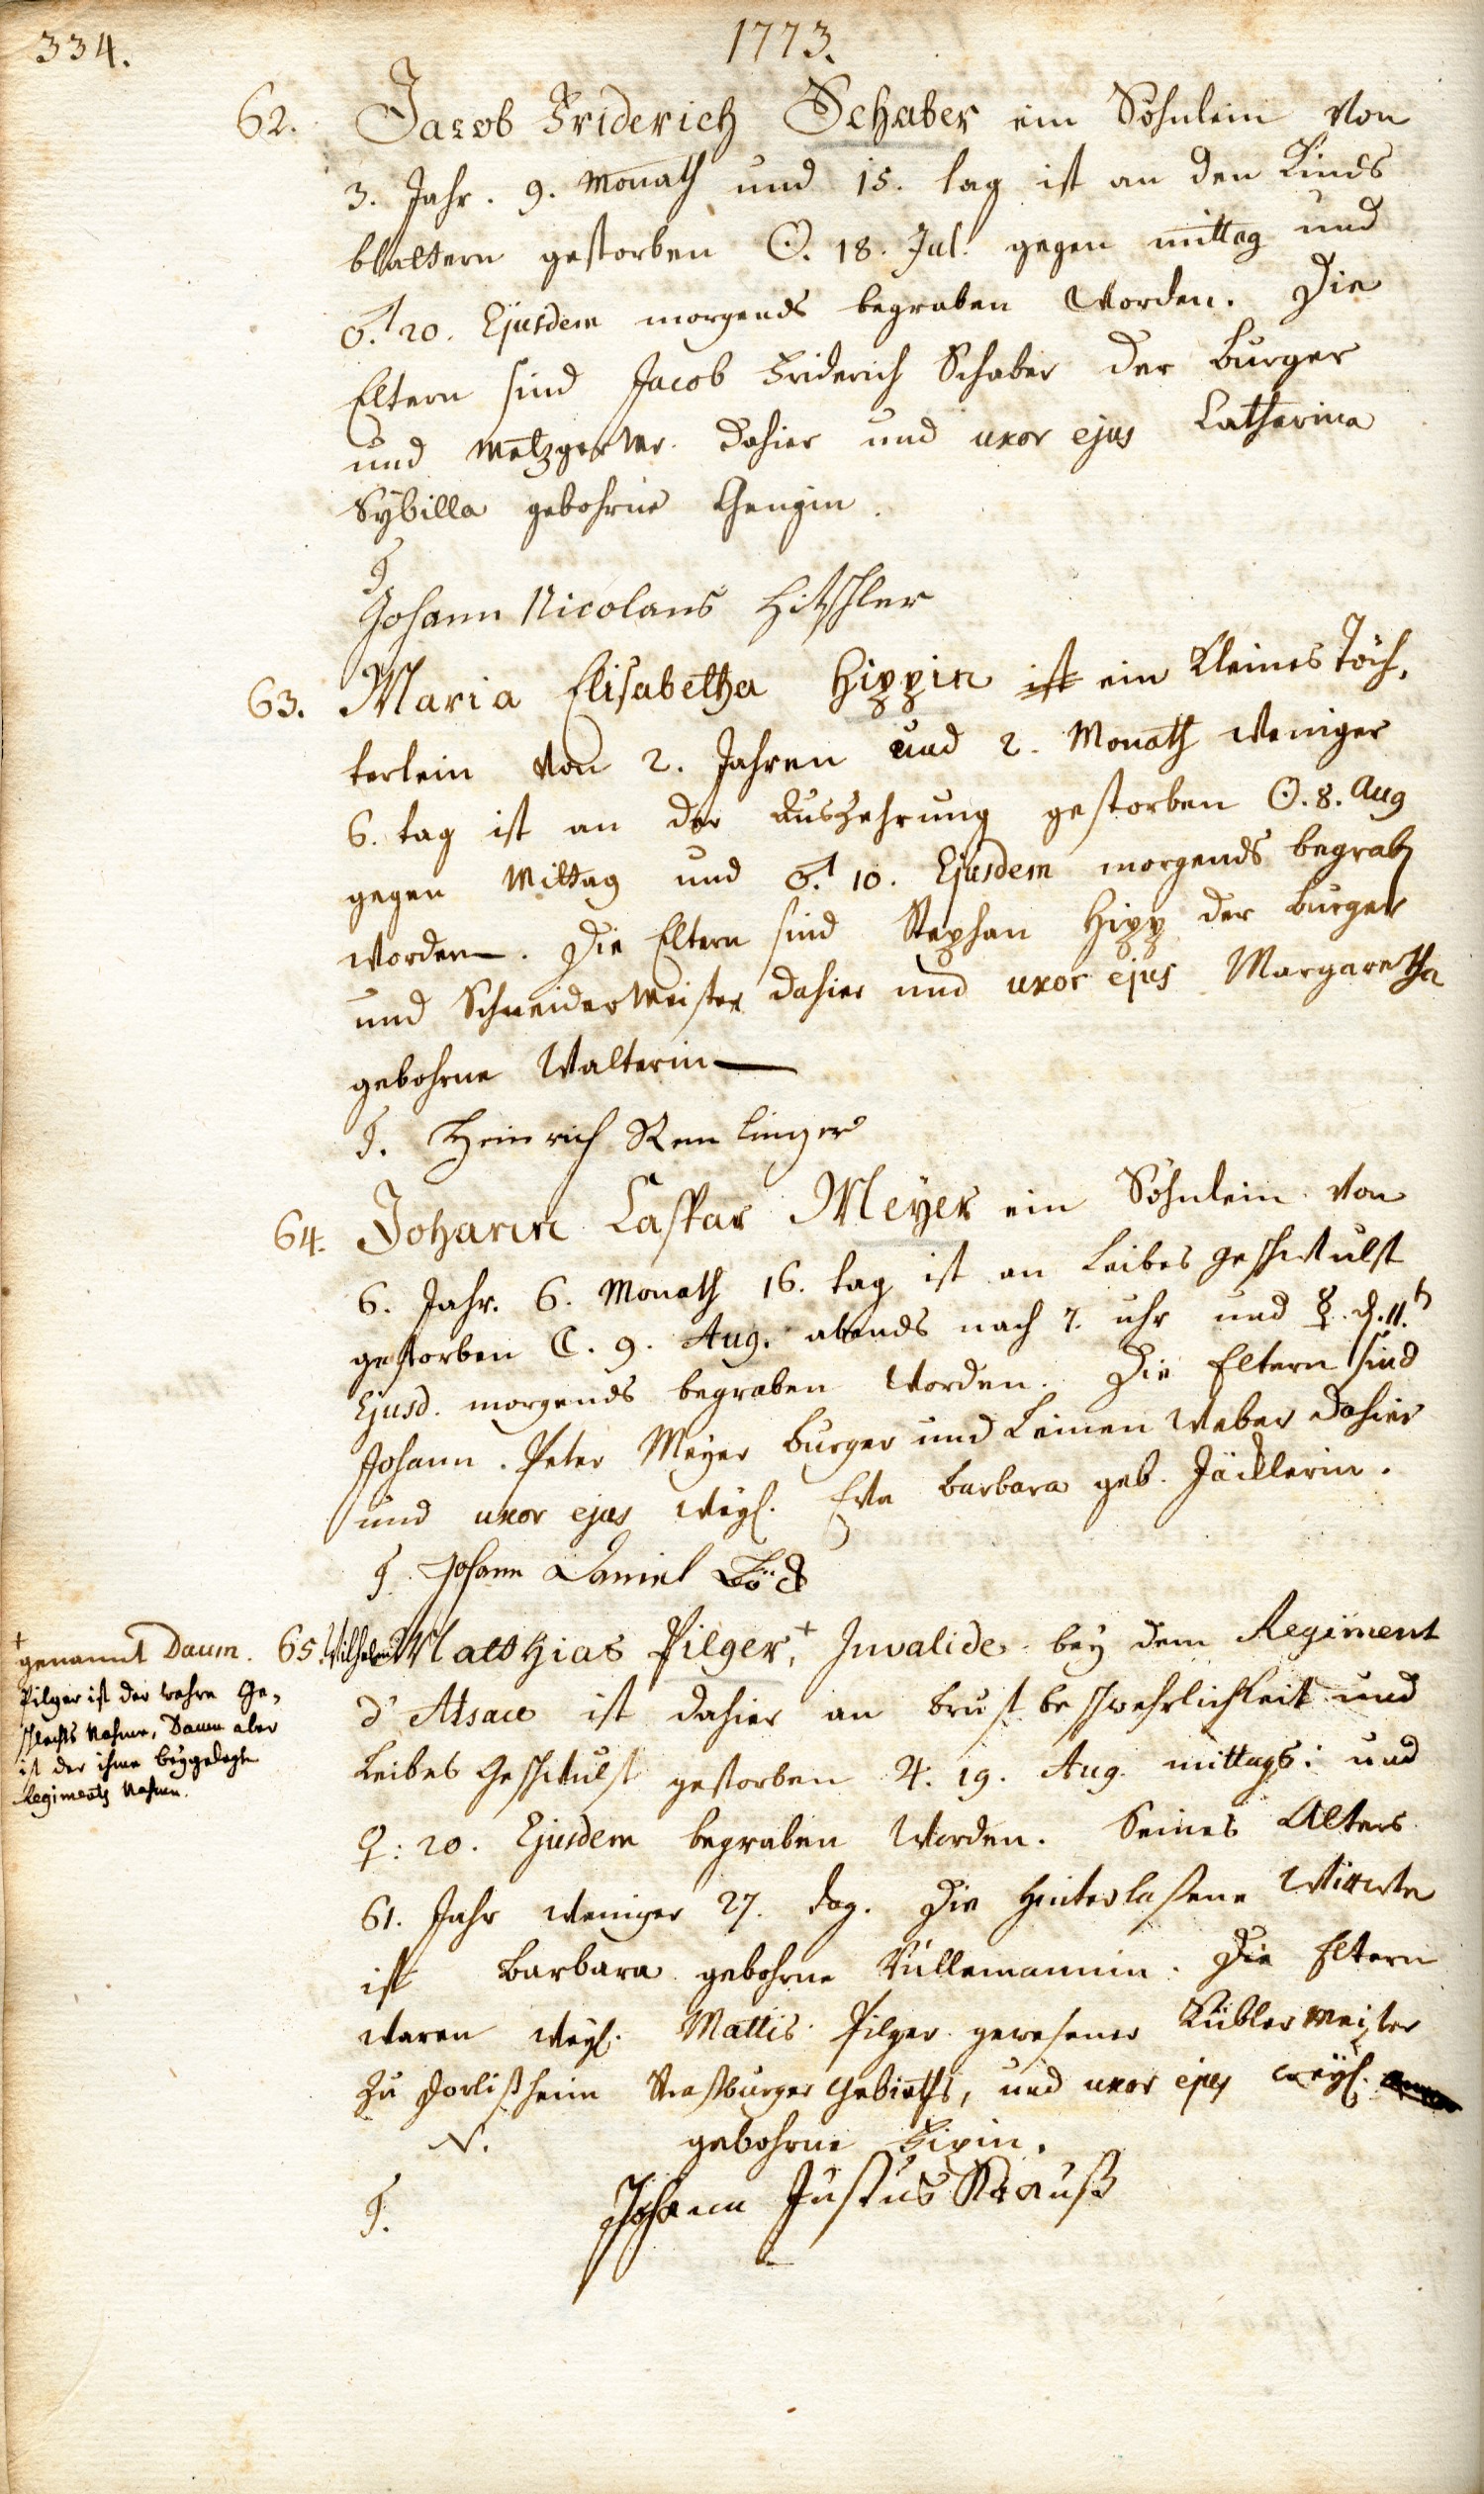 334.
1773.
62. Jacob Friderich Schaber ein Söhnlein von
3. Jahr. 9. Monath und 15. tag ist an den Kinds
blattern gestorben ☉. 18. Jul. gegen mittag und
♂. 20. Ejusdem morgends begraben worden. Die
Eltern sind Jacob Friderich Schaber der burger
und Metzger Mr. dahier und uxor ejus Catharina
Sybilla gebohrne Gengin.
T
Johann Nicolaus Hitschler
63. Maria Elisabetha Hippin ist ein kleines Töch,
terlein von 2. Jahren und 2. Monath weniger
6. tag ist an der Auszehrung gestorben ☉. 8. Aug
gegen Mittag und ♂. 10. Ejusdem morgends begraben
worden. Die Eltern sind Stephan Hipp der burger
und Schneidermeister dahier und uxor ejus Margaretha
gebohrne Walterin
T. Heinrich Remlinger
64. Johann Caspar Meyer ein Söhnlein von
6. Jahr. 6. Monath 16. tag ist an Leibes geschwulst
gestorben ☾. 9. Aug. abends nach 7. uhr und ☿. d. 11.
Ejusd. morgends begraben worden. Die Eltern sind
Johann. Peter Meyer burger und Leinenweber dahier
und uxor ejus weyl. Eva barbara geb. Jäcklerin.
T. Johann Daniel Böck
65. Wilhelm Matthias Pilger,+ Invalide bey dem Regiment
d'Alsace ist dahier an brust beschwehrlichkeit und
Leibes Geschwulst gestorben ♃. 19. Aug. mittags: und
♀: 20. Ejusdem begraben worden. Seines Alters
61. Jahr weniger 27. tag. Die hinterlaßene Wittwe
ist Barbara gebohrne Vüllemannin. Die Eltern
waren weyl. Mattis Pilger gewesener Küblermeister
zu Dorlißheim Straßburger Gebieths, und uxor ejus weyl.
N. gebohrne
T. Johann Justus Krauß
+
genannt Daum.
Pilger ist der wahre Ge,
schlechts Nahme, Daum aber
ist der ihme beygelegte
Regiments Nahmen.